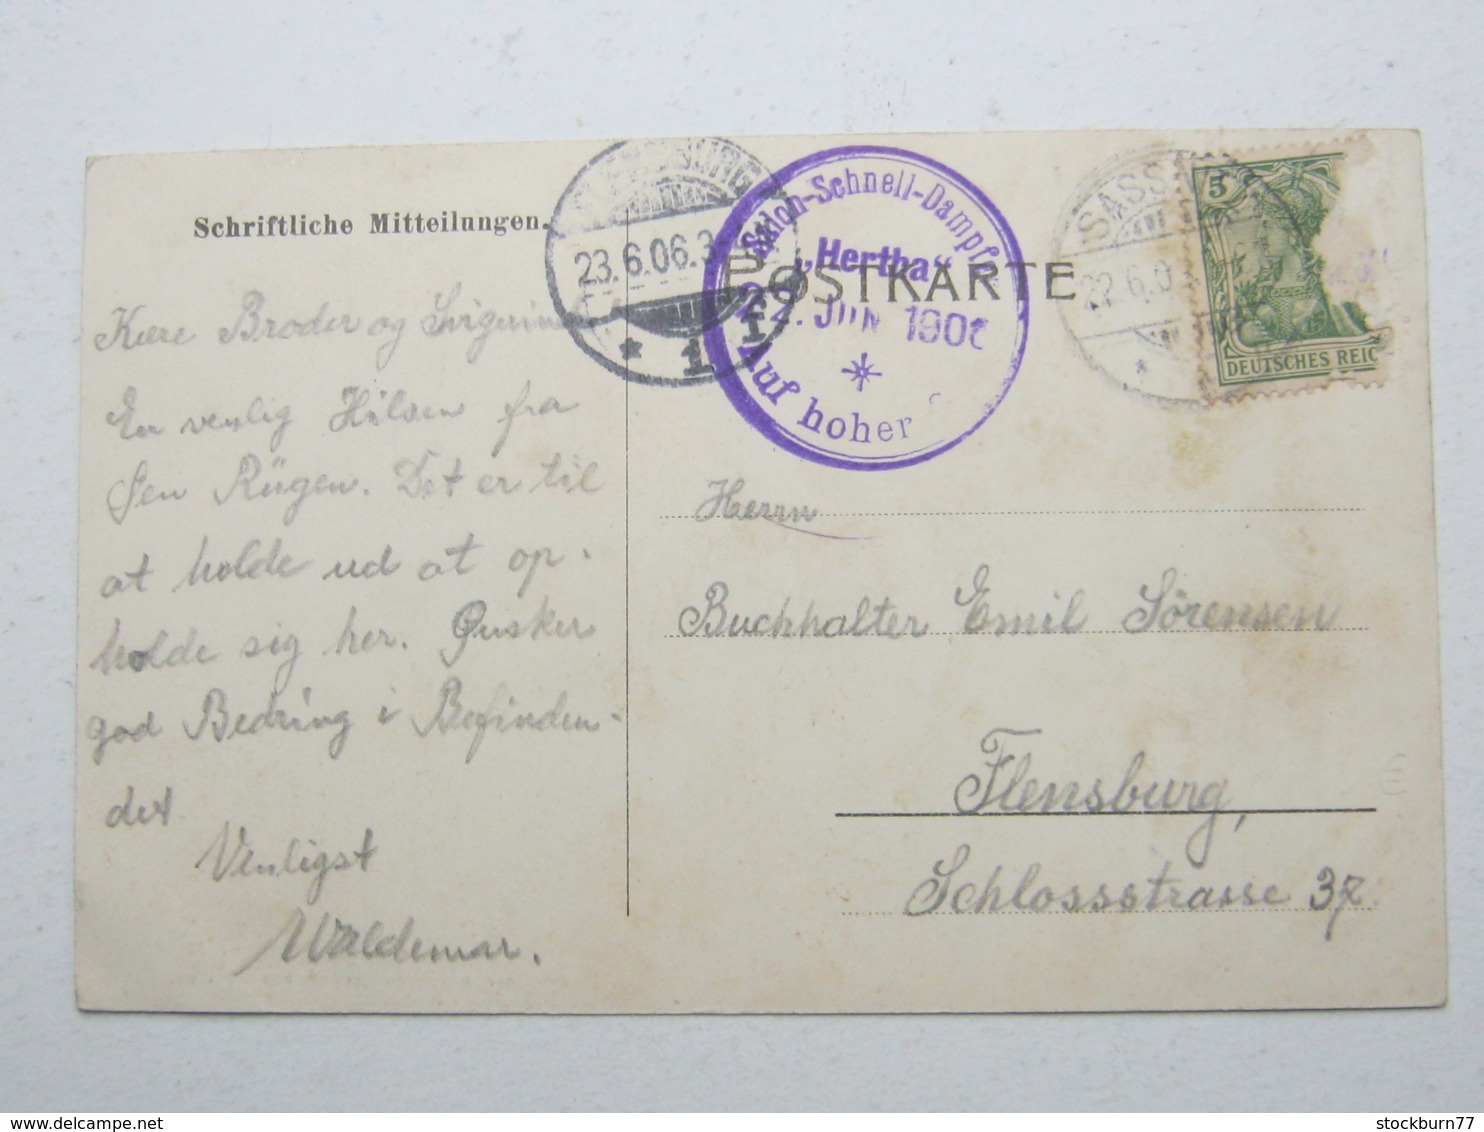 Schriftliche Mitteilungen.
POSTKARTE
Kære Broder og Svigerinde
En venlig Hilsen fra
Øen Rügen. Det er til
at holde ud at op-
holde sig her. Ønsker
god Bedring i Befinden-
det
Venligst
Waldemar.
23.6.06.3
1
Salon-Schnell-Dampfer
„Hertha“
22. JUN 190
Auf hoher
SASS
22.6.0
5
DEUTSCHES REIC
Herrn
Buchhalter Emil Sörensen
Flensburg,
Schlossstrasse 37
stockburn77